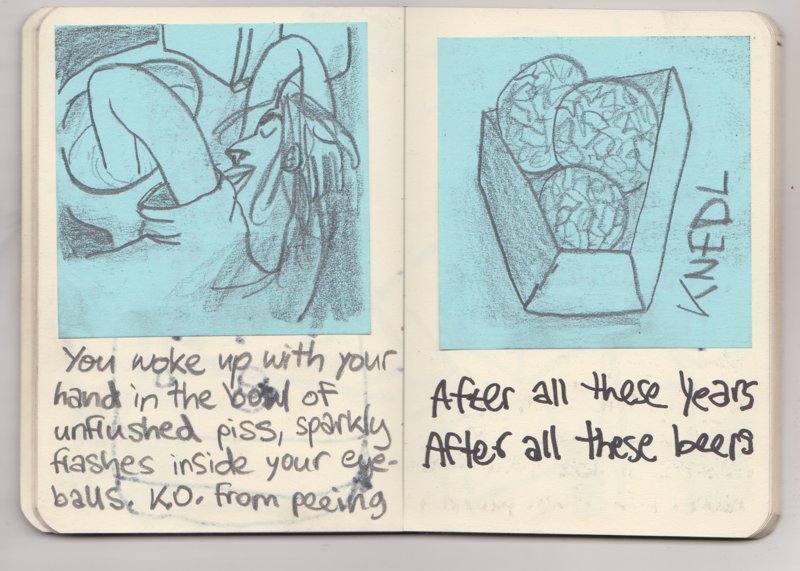 You woke up with your
hand in the bowl of
unflushed piss, sparkly
flashes inside your eye-
balls. K.O. from peeing
KNEDL
After all these years
After all these beers